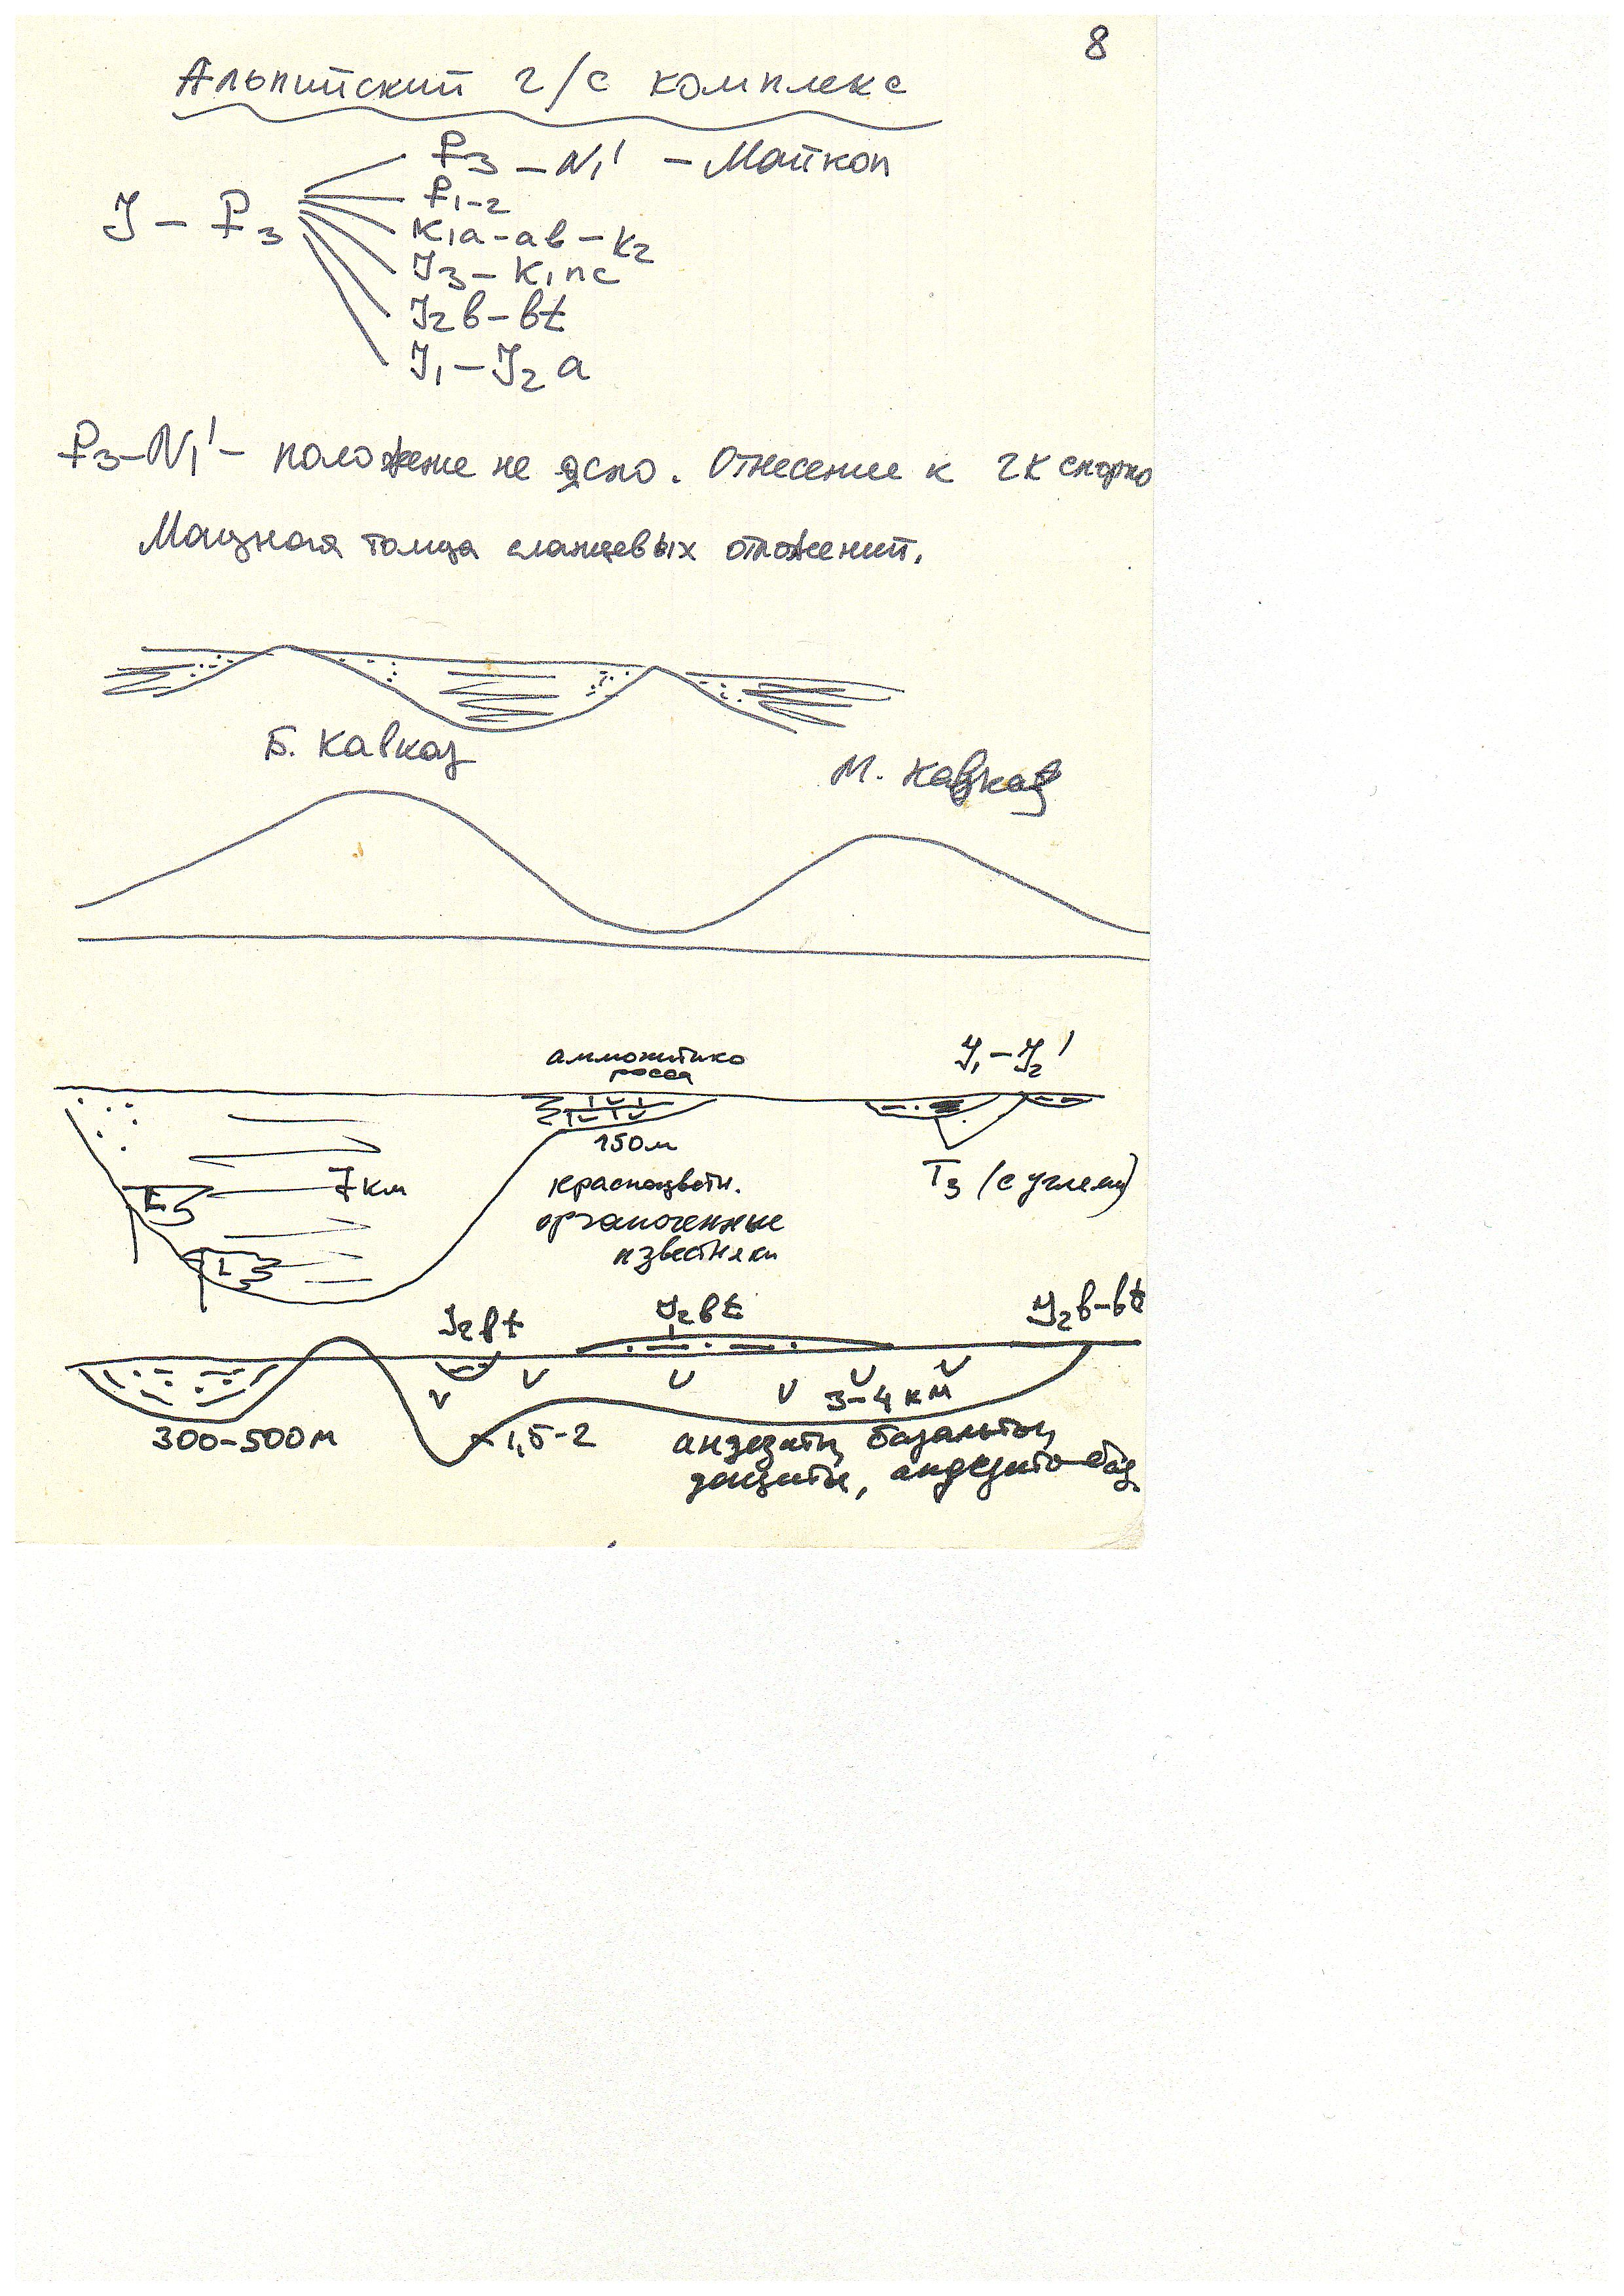 8
Альпийский г/с комплекс
J – ₽₃
₽₃ – N₁' – Майкоп
₽₁₋₂
K₁a – ab – K₂
J₃ – K₁nc
J₂b – bt
J₁ – J₂ a
₽₃–N₁' – положение не ясно. Отнесение к ГК спорно
Мощная толща сланцевых отложений.
Б. Кавказ
М. Кавказ
аммонитико
росса
J₁ – J₂'
150м
7 км
T₃ (с углем)
красноцветн.
органогенные
известняки
L
J₂bt
J₂bt
J₂b–bt
3–4 км
300–500м
1,5–2
андезиты, базальты,
дациты, андезито-баз.